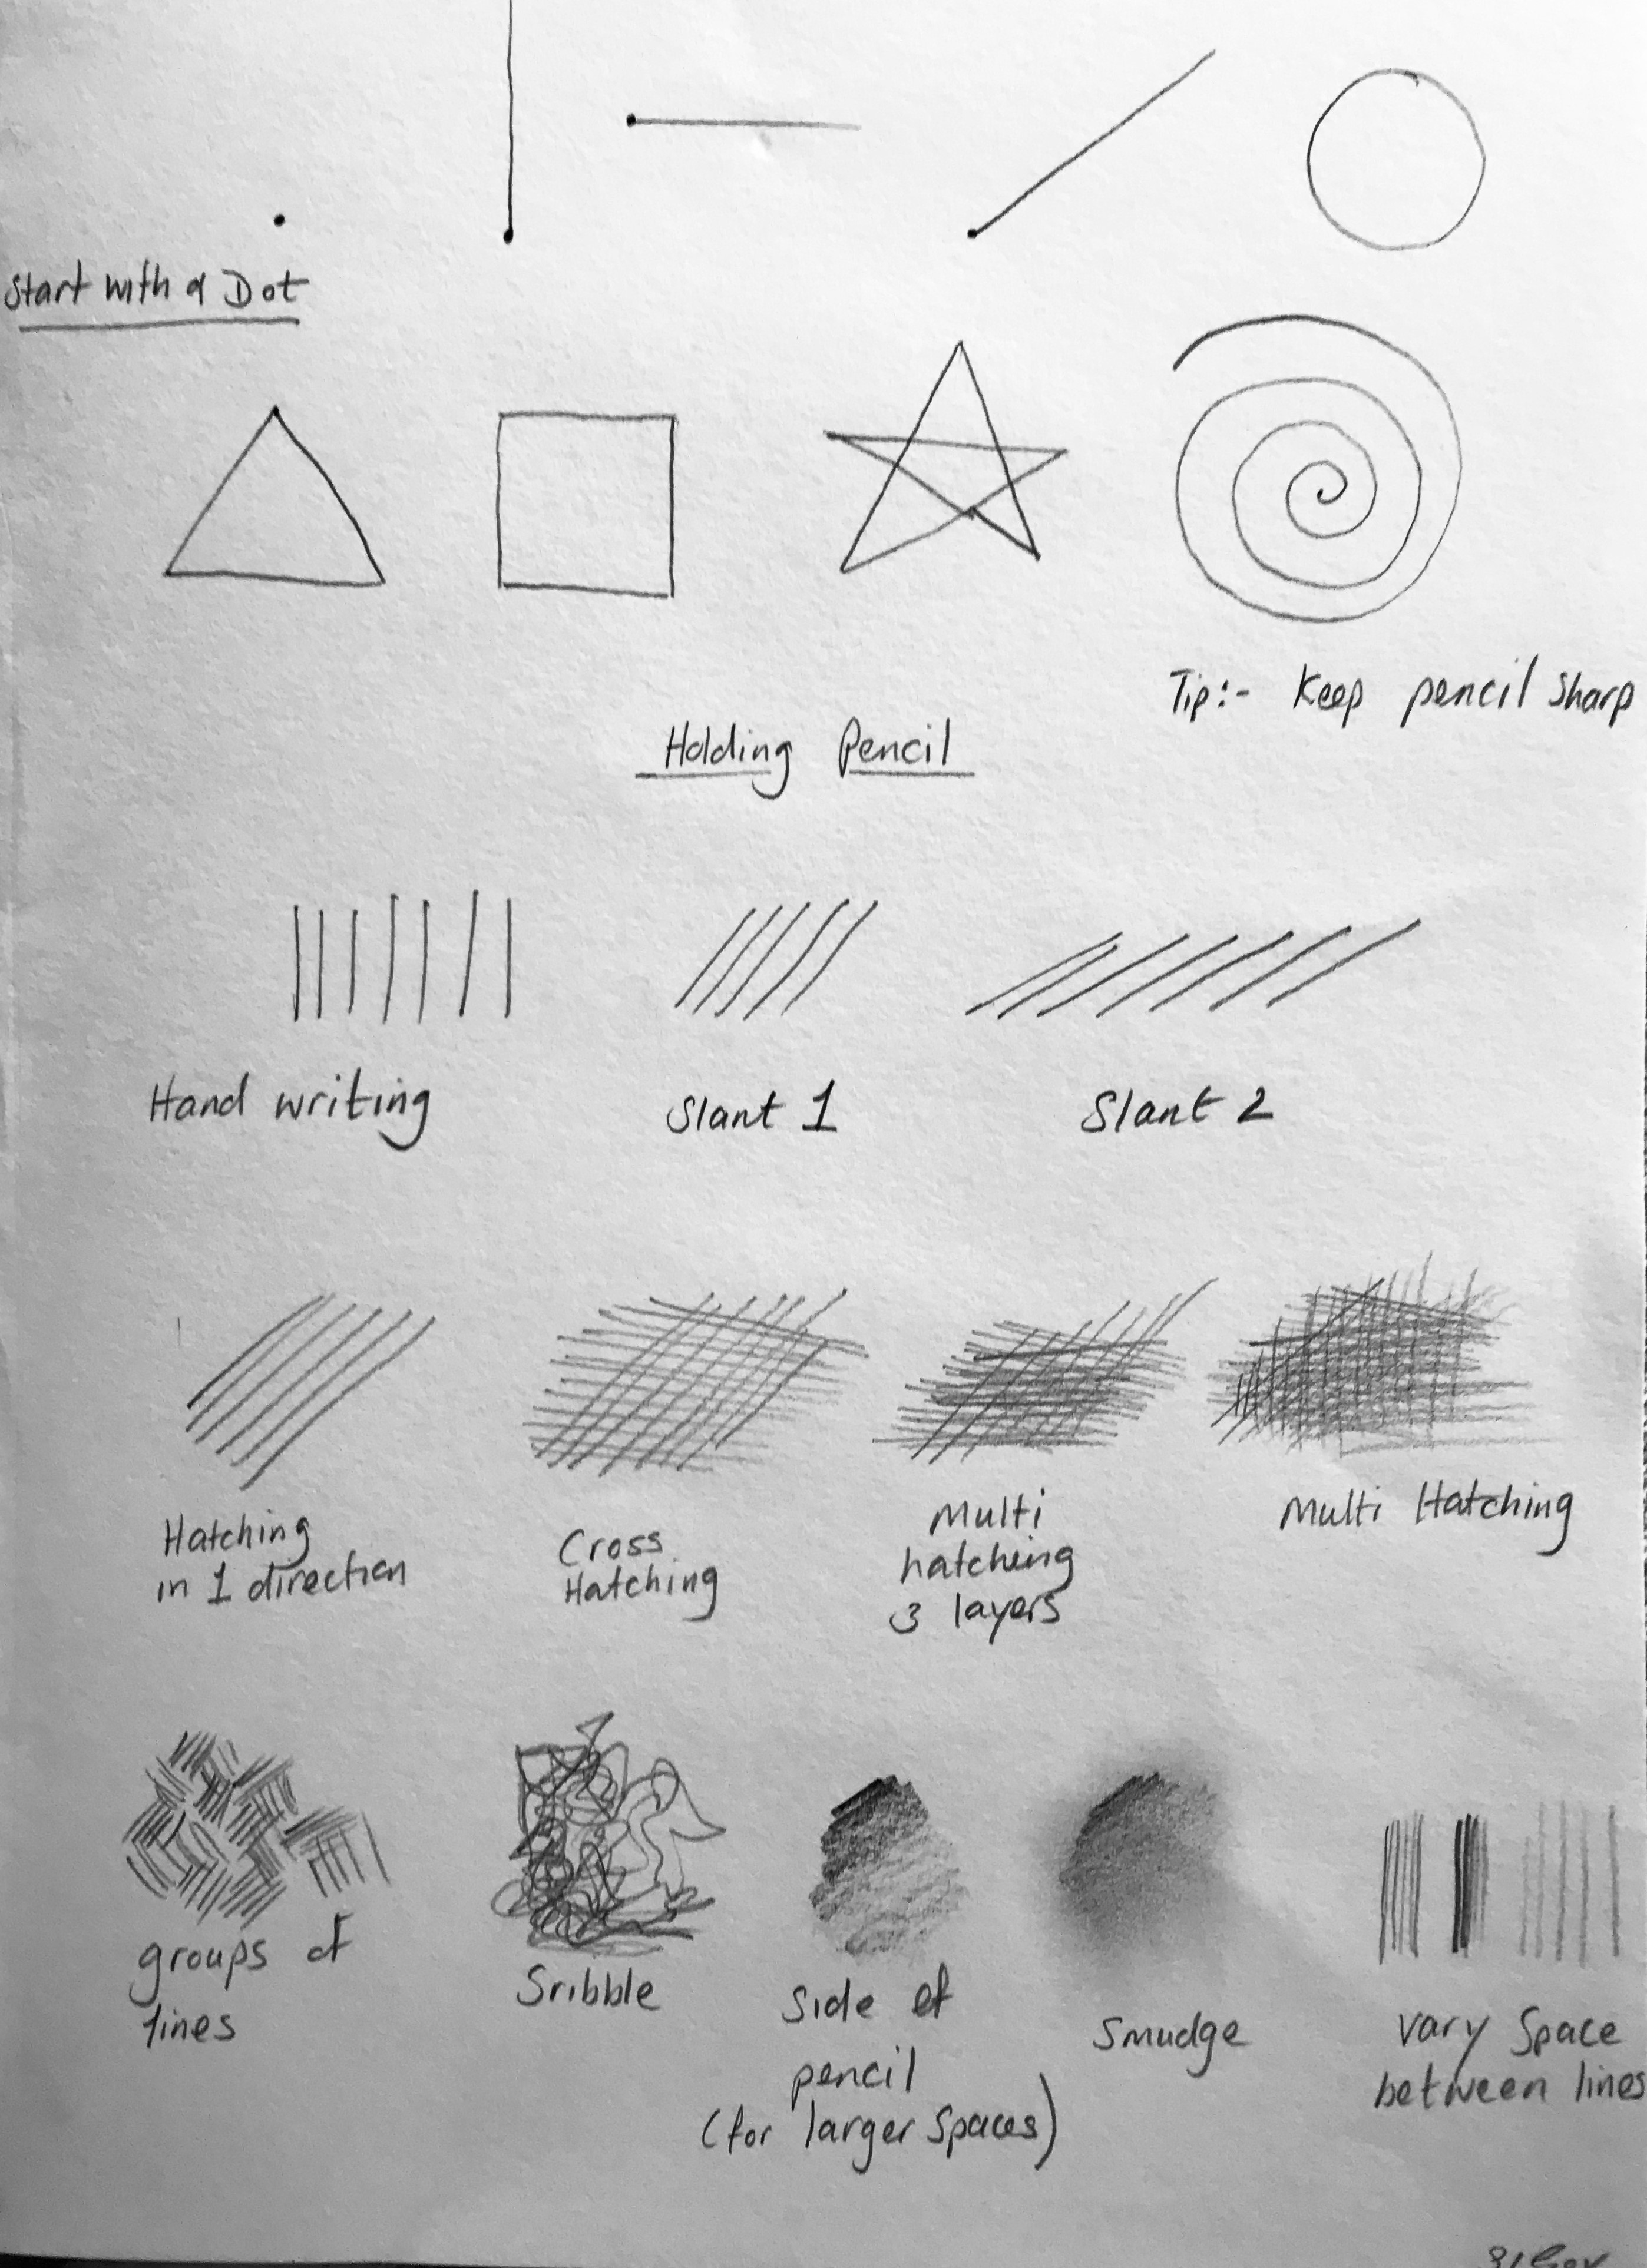 Start with a Dot
Tip:- Keep pencil sharp
Holding Pencil
Hand writing
Slant 1
Slant 2
Hatching
in 1 direction
Cross
Hatching
Multi
hatching
3 layers
Multi Hatching
groups of
lines
Sribble
Side of
pencil
(for larger spaces)
Smudge
vary Space
between lines